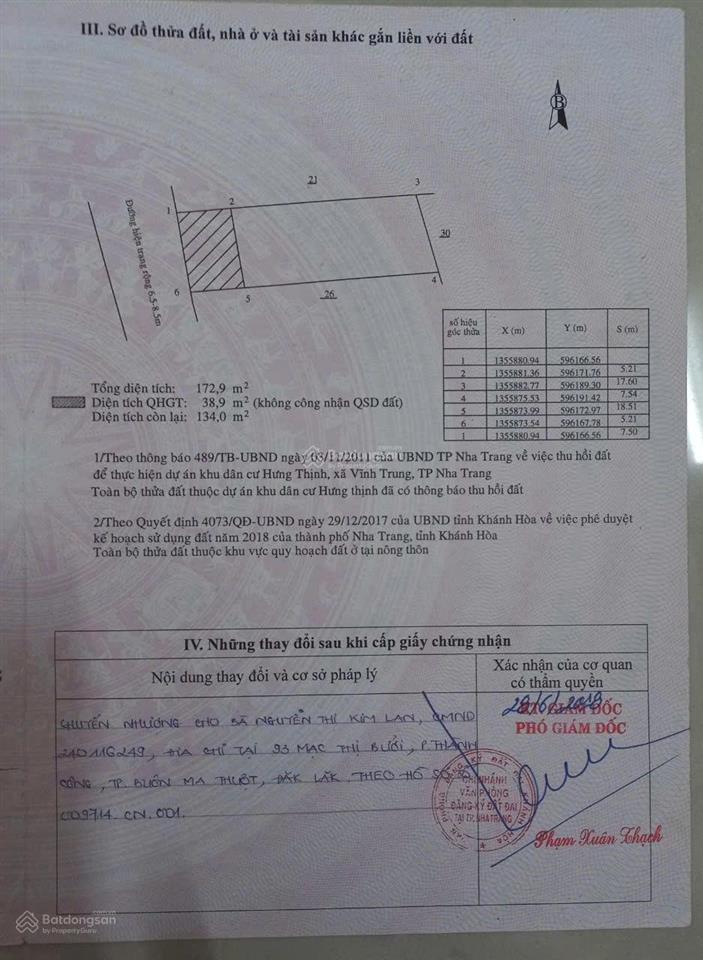 III. Sơ đồ thửa đất, nhà ở và tài sản khác gắn liền với đất
B
21
3
2
1
30
Đường hiện trạng rộng 6.5-8.5m
4
6
26
5
số hiệu góc thửa X (m) Y (m) S (m)
1 1355880.94 596166.56
5.21
2 1355881.36 596171.76
17.60
3 1355882.77 596189.30
7.54
4 1355875.53 596191.42
18.51
5 1355873.99 596172.97
5.21
6 1355873.54 596167.78
7.50
1 1355880.94 596166.56
Tổng diện tích: 172,9 m2
Diện tích QHGT: 38,9 m2 (không công nhận QSD đất)
Diện tích còn lại: 134,0 m2
1/Theo thông báo 489/TB-UBND ngày 03/11/2011 của UBND TP Nha Trang về việc thu hồi đất
để thực hiện dự án khu dân cư Hưng Thịnh, xã Vĩnh Trung, TP Nha Trang
Toàn bộ thửa đất thuộc dự án khu dân cư Hưng thịnh đã có thông báo thu hồi đất
2/Theo Quyết định 4073/QĐ-UBND ngày 29/12/2017 của UBND tỉnh Khánh Hòa về việc phê duyệt
kế hoạch sử dụng đất năm 2018 của thành phố Nha Trang, tỉnh Khánh Hòa
Toàn bộ thửa đất thuộc khu vực quy hoạch đất ở tại nông thôn
IV. Những thay đổi sau khi cấp giấy chứng nhận
Nội dung thay đổi và cơ sở pháp lý
Xác nhận của cơ quan
có thẩm quyền
CHUYỂN NHƯỢNG CHO BÀ NGUYỄN THỊ KIM LAN, CMND
240116249, ĐỊA CHỈ TẠI 93 MẠC THỊ BƯỞI, P. THÀNH
CÔNG, TP. BUÔN MA THUỘT, ĐẮK LẮK THEO HỒ SƠ SỐ
009714. CN. 001.
28/6/2019
KT GIÁM ĐỐC
PHÓ GIÁM ĐỐC
CHI NHÁNH
VĂN PHÒNG
ĐĂNG KÝ ĐẤT ĐAI
TẠI TP. NHA TRANG
Phạm Xuân Thạch
Batdongsan
by PropertyGuru